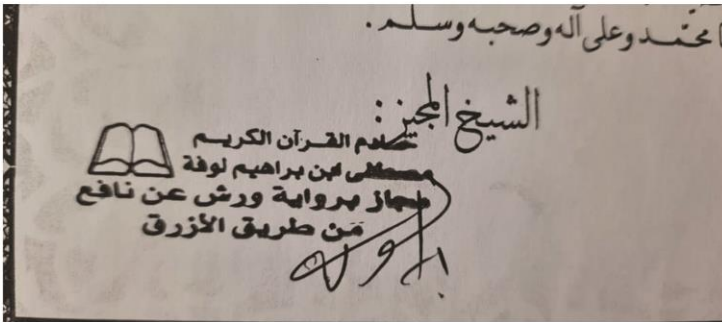 محمد وعلى آله وصحبه وسلم.
الشيخ المجيز:
خادم القرآن الكريم
مصطفى ابن براهيم لوفة
مجاز برواية ورش عن نافع
من طريق الأزرق